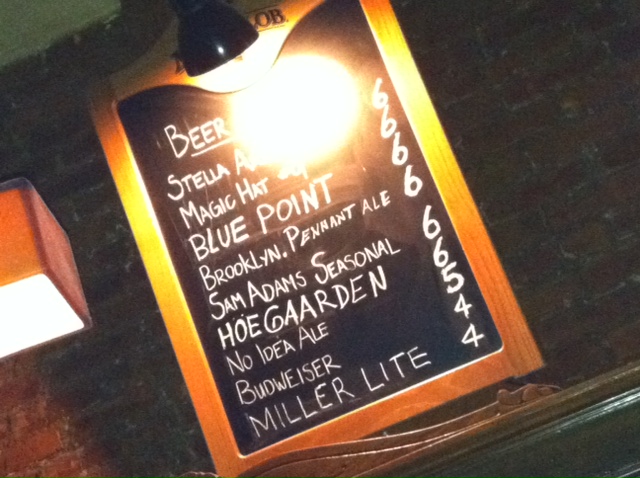 BEER
STELLA 6
MAGIC HAT 6
BLUE POINT 6
BROOKLYN. PENNANT ALE 6
SAM ADAMS SEASONAL 6
HOEGAARDEN 6
NO IDEA ALE 5
BUDWEISER 4
MILLER LITE 4